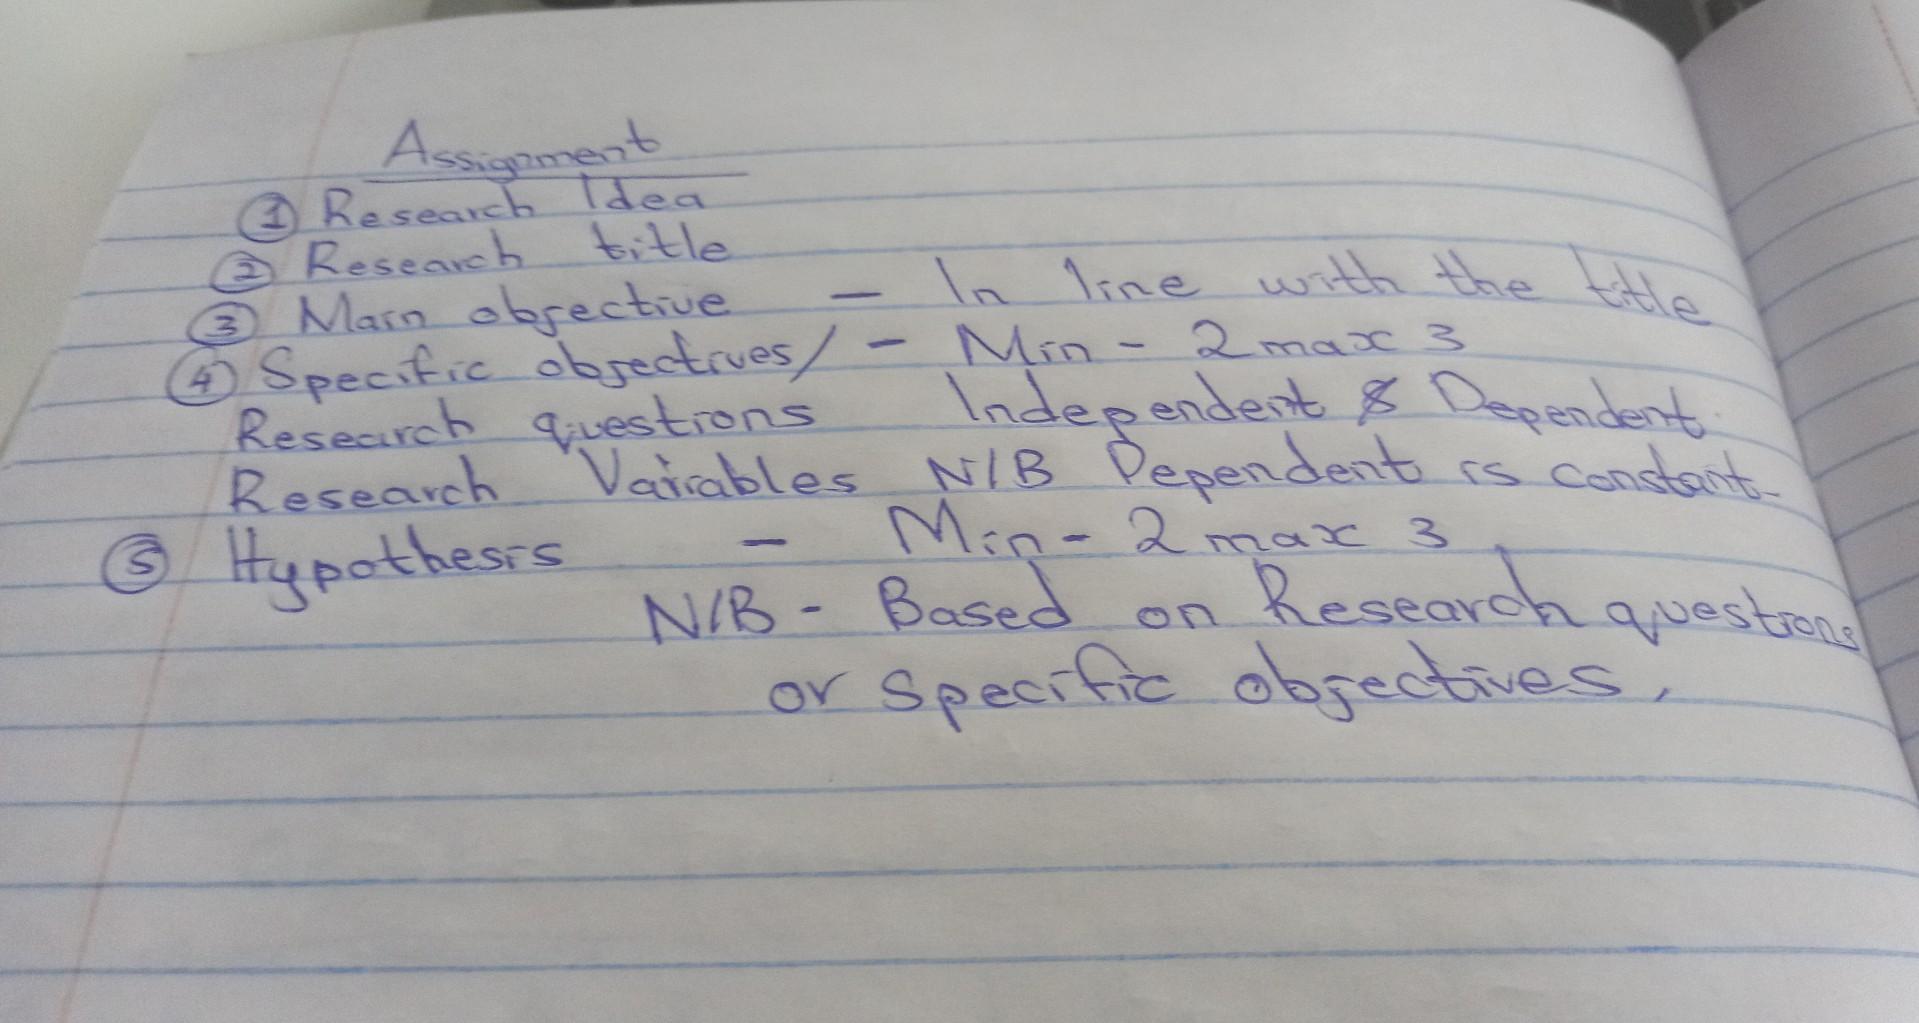 Assignment
① Research Idea
② Research title
③ Main objective - In line with the title
④ Specific objectives/ - Min - 2 max 3
Research questions Independent & Dependent
Research Variables N/B Dependent is constant-
⑤ Hypothesis - Min - 2 max 3
N/B - Based on Research questions
or specific objectives,